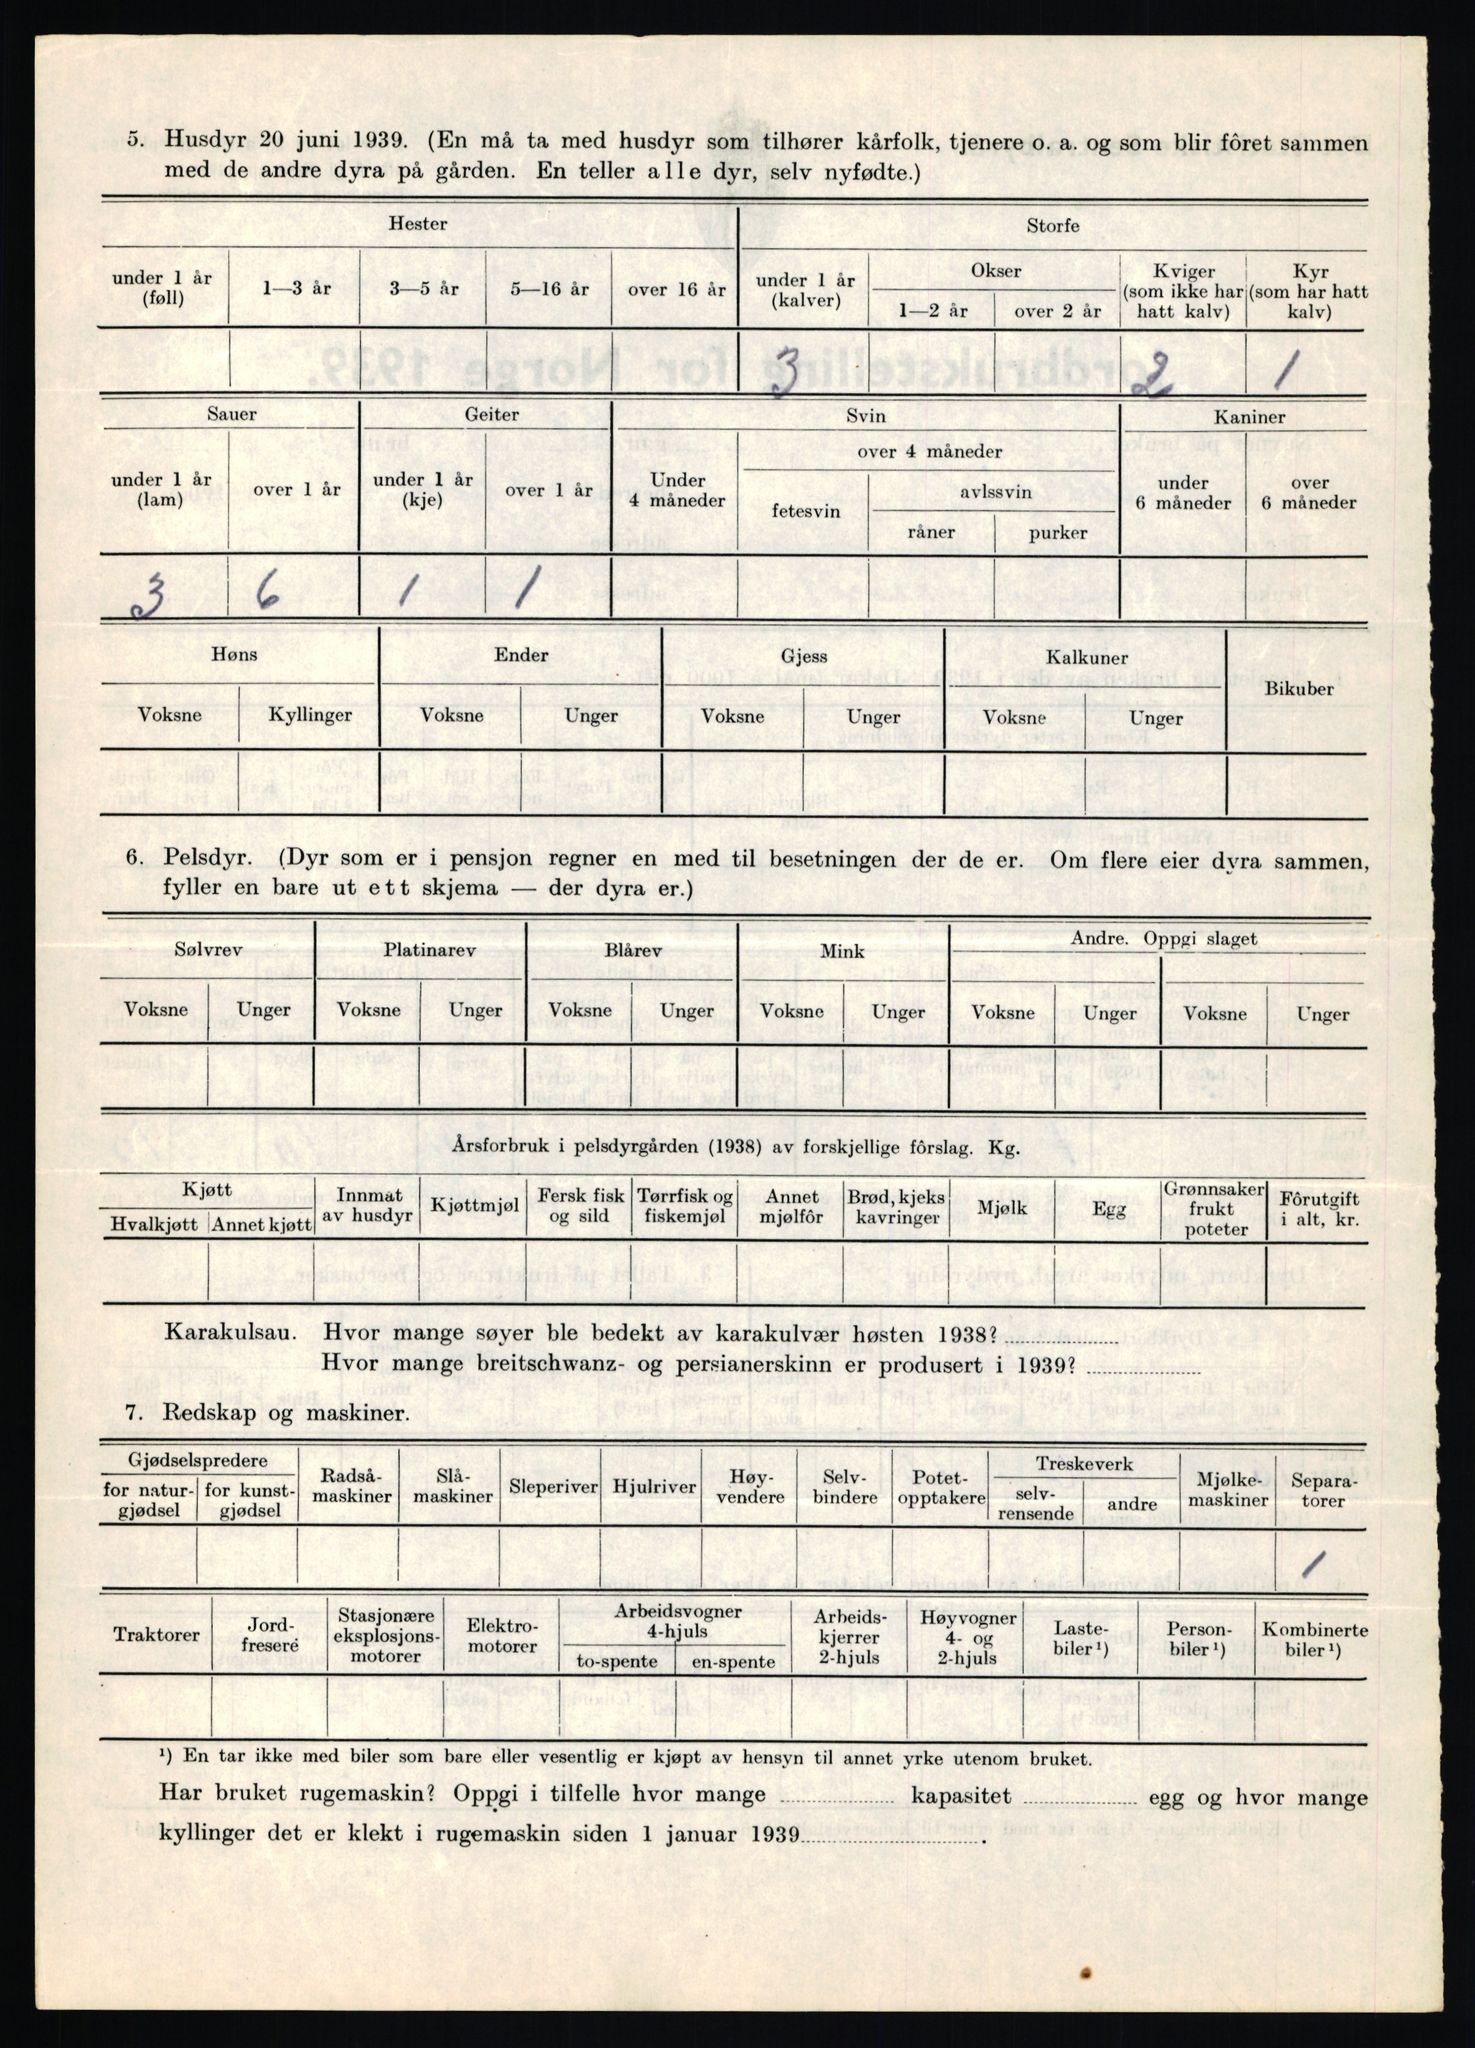 5. Husdyr 20 juni 1939. (En må ta med husdyr som tilhører kårfolk, tjenere o. a. og som blir fôret sammen
med de andre dyra på gården. En teller alle dyr, selv nyfødte.)
Hester Storfe
under 1 år (føll) 1—3 år 3—5 år 5—16 år over 16 år under 1 år (kalver) Okser 1—2 år over 2 år Kviger (som ikke har hatt kalv) Kyr (som har hatt kalv)
3 2 1
Sauer Geiter Svin Kaniner
under 1 år (lam) over 1 år under 1 år (kje) over 1 år Under 4 måneder over 4 måneder fetesvin avlssvin råner purker under 6 måneder over 6 måneder
3 6 1 1
Høns Ender Gjess Kalkuner Bikuber
Voksne Kyllinger Voksne Unger Voksne Unger Voksne Unger
6. Pelsdyr. (Dyr som er i pensjon regner en med til besetningen der de er. Om flere eier dyra sammen,
fyller en bare ut ett skjema — der dyra er.)
Sølvrev Platinarev Blårev Mink Andre. Oppgi slaget
Voksne Unger Voksne Unger Voksne Unger Voksne Unger Voksne Unger Voksne Unger
Årsforbruk i pelsdyrgården (1938) av forskjellige fôrslag. Kg.
Kjøtt Hvalkjøtt Annet kjøtt Innmat av husdyr Kjøttmjøl Fersk fisk og sild Tørrfisk og fiskemjøl Annet mjølfôr Brød, kjeks kavringer Mjølk Egg Grønnsaker frukt poteter Fôrutgift i alt, kr.
Karakulsau. Hvor mange søyer ble bedekt av karakulvær høsten 1938?
Hvor mange breitschwanz- og persianerskinn er produsert i 1939?
7. Redskap og maskiner.
Gjødselspredere for natur-gjødsel for kunst-gjødsel Radså-maskiner Slå-maskiner Sleperiver Hjulriver Høy-vendere Selv-bindere Potet-opptakere Treskeverk selv-rensende andre Mjølke-maskiner Separa-torer
1
Traktorer Jord-fresere Stasjonære eksplosjons-motorer Elektro-motorer Arbeidsvogner 4-hjuls to-spente en-spente Arbeids-kjerrer 2-hjuls Høyvogner 4- og 2-hjuls Laste-biler ¹) Person-biler ¹) Kombinerte biler ¹)
¹) En tar ikke med biler som bare eller vesentlig er kjøpt av hensyn til annet yrke utenom bruket.
Har bruket rugemaskin? Oppgi i tilfelle hvor mange kapasitet egg og hvor mange
kyllinger det er klekt i rugemaskin siden 1 januar 1939 .